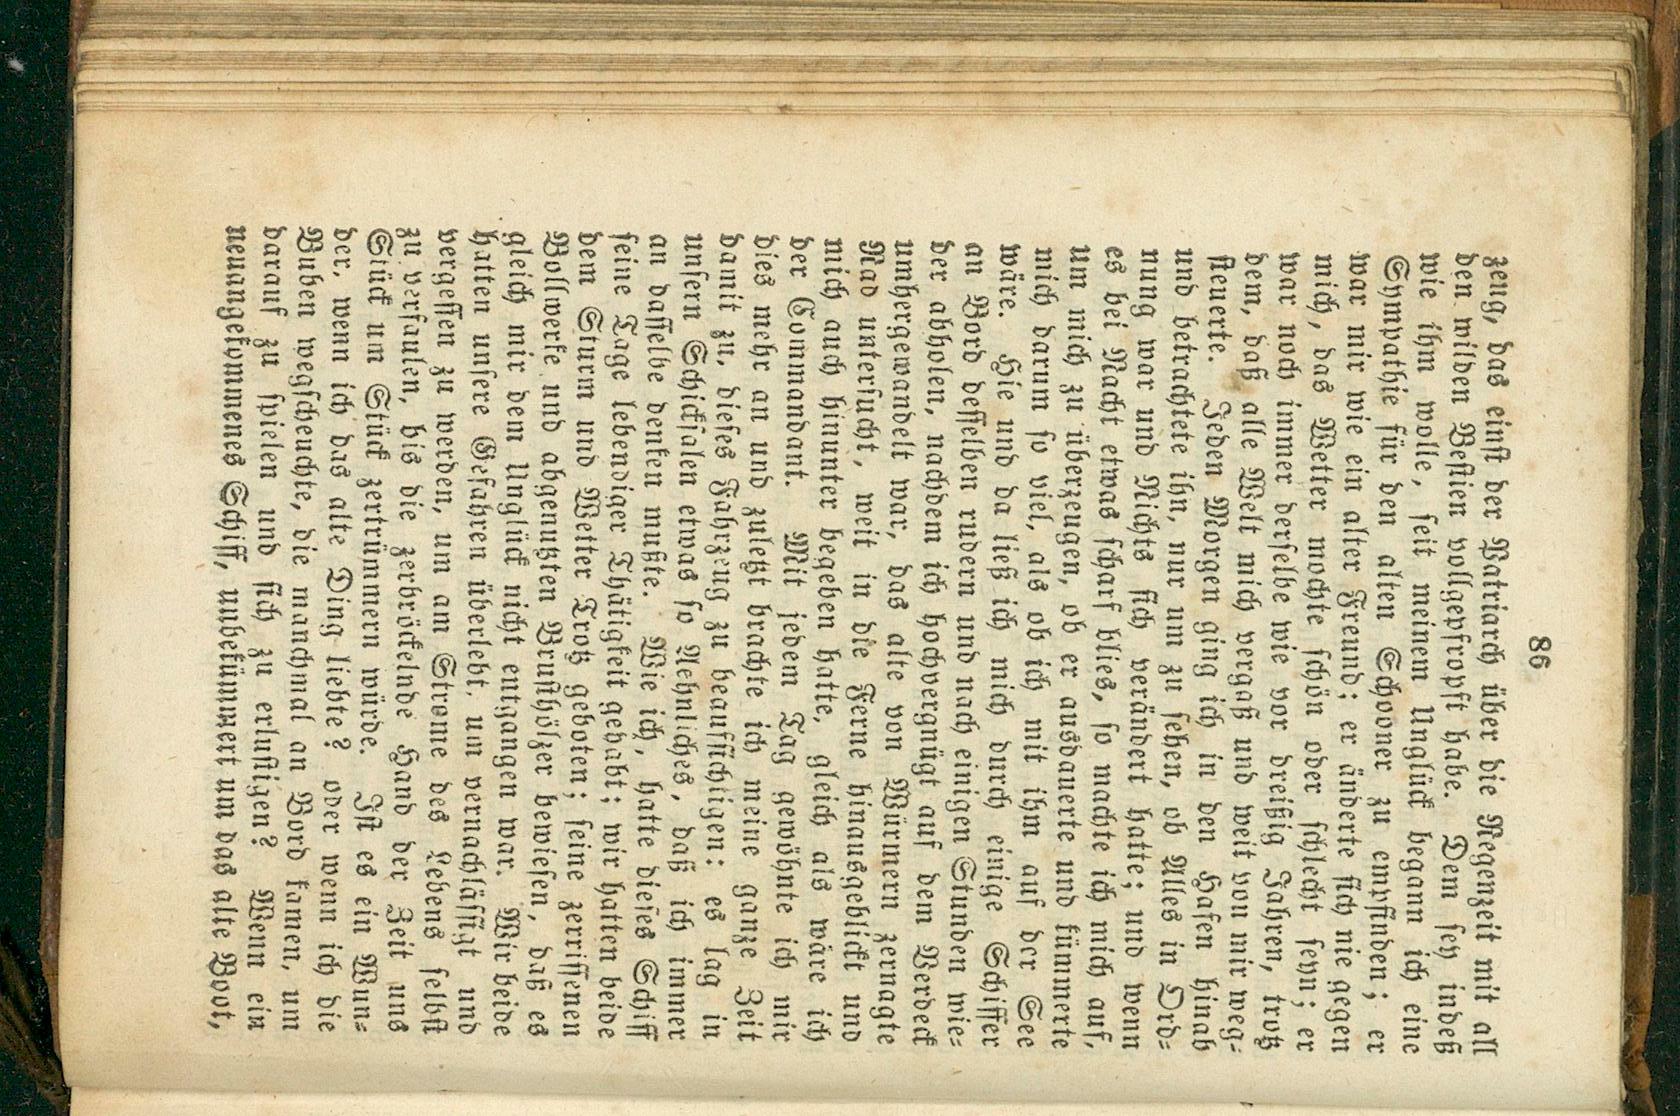 86
zeug, das einst der Patriarch über die Regenzeit mit all
den wilden Bestien vollgepfropft habe. Dem sey indeß
wie ihm wolle, seit meinem Unglück begann ich eine
Sympathie für den alten Schooner zu empfinden; er
war mir wie ein alter Freund; er änderte sich nie gegen
mich, das Wetter mochte schön oder schlecht seyn; er
war noch immer derselbe wie vor dreißig Jahren, trotz
dem, daß alle Welt mich vergaß und weit von mir weg-
steuerte. Jeden Morgen ging ich in den Hafen hinab
und betrachtete ihn, nur um zu sehen, ob Alles in Ord-
nung war und Nichts sich verändert hatte; und wenn
es bei Nacht etwas scharf blies, so machte ich mich auf,
um mich zu überzeugen, ob er ausdauerte und kümmerte
mich darum so viel, als ob ich mit ihm auf der See
wäre. Hie und da ließ ich mich durch einige Schiffer
an Bord desselben rudern und nach einigen Stunden wie-
der abholen, nachdem ich hochvergnügt auf dem Verdeck
umhergewandelt war, das alte von Würmern zernagte
Rad untersucht, weit in die Ferne hinausgeblickt und
mich auch hinunter begeben hatte, gleich als wäre ich
der Commandant. Mit jedem Tag gewöhnte ich mir
dies mehr an und zuletzt brachte ich meine ganze Zeit
damit zu, dieses Fahrzeug zu beaufsichtigen: es lag in
unsern Schicksalen etwas so Aehnliches, daß ich immer
an dasselbe denken mußte. Wie ich, hatte dieses Schiff
seine Tage lebendiger Thätigkeit gehabt; wir hatten beide
dem Sturm und Wetter Trotz geboten; seine zerrissenen
Bollwerke und abgenutzten Brusthölzer bewiesen, daß es
gleich mir dem Unglück nicht entgangen war. Wir beide
hatten unsere Gefahren überlebt, um vernachlässigt und
vergessen zu werden, um am Strome des Lebens selbst
zu verfaulen, bis die zerbröckelnde Hand der Zeit uns
Stück um Stück zertrümmern würde. Ist es ein Wun-
der, wenn ich das alte Ding liebte? oder wenn ich die
Buben wegscheuchte, die manchmal an Bord kamen, um
darauf zu spielen und sich zu erlustigen? Wenn ein
neuangekommenes Schiff, unbekümmert um das alte Boot,